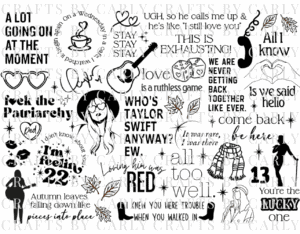 A LOT
GOING ON
AT THE
MOMENT
On a Wednesday in a café, I watched it begin again
STAY
STAY
STAY
UGH, so he calls me up &
he's like "I still love you"
THIS IS
EXHAUSTING!
All I
know
is we said
hello
love
is a ruthless game
WE ARE
NEVER
GETTING
BACK
TOGETHER
LIKE EVER.
f*ck the
Patriarchy
WHO'S
TAYLOR
SWIFT
ANYWAY?
EW.
come back
be here
Red
I'm
feeling
22
It was rare,
I was there
Loving him was
RED
all
too
well
13
Autumn leaves
falling down like
pieces into place
I KNEW YOU WERE TROUBLE
WHEN YOU WALKED IN
You're the
LUCKY
one